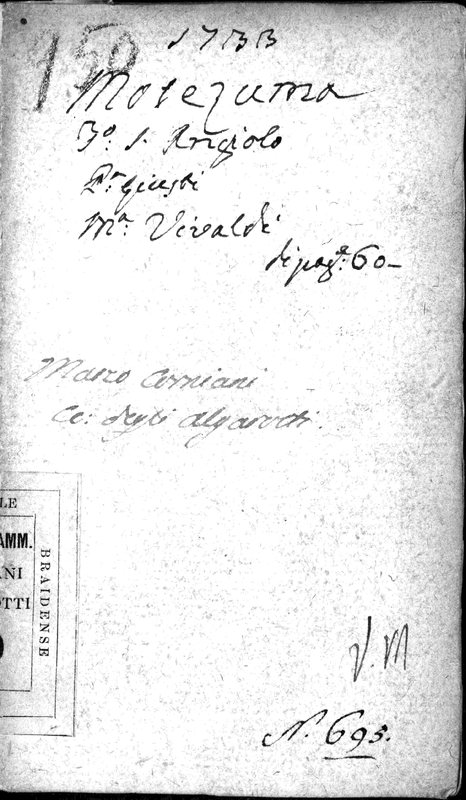 150
1733
Motezuma
To. S. Angiolo
Pa. Giusti
Ma. Vivaldi
di pag.e 60
Marco Corniani
Co: degli Algarotti.
LE
AMM.
ANI
OTTI
BRAIDENSE
V. M
N. 695.